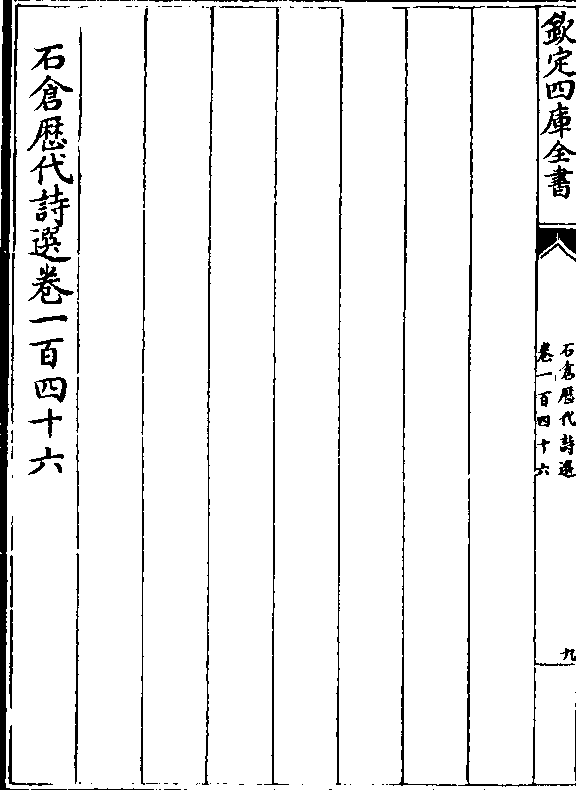 欽定四庫全書
石倉歷代詩選
卷一百四十六
九
石倉歷代詩選卷一百四十六